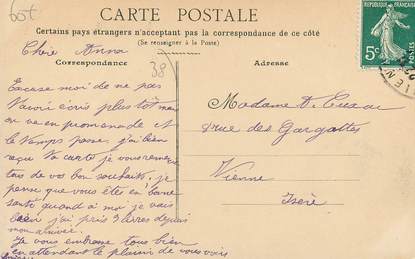 CARTE POSTALE
Certains pays étrangers n'acceptent pas la correspondance de ce côté
(Se renseigner à la Poste)
RÉPUBLIQUE FRANÇAISE
5c
POSTES
Chère Anna
38
Correspondance
Adresse
Excuse moi de ne pas
t'avoir écris plus tôt mais
on va en promenade et
le temps passe, j'ai bien
reçu ta carte je vous remercie
tous de vos bon souhaits, je
pense que vous êtes en bonne
santé quand à moi je vais
bien j'ai pris 3 livres depuis
mon arrivée.
Je vous embrasse tous bien
en attendant le plaisir de vous voir
Madame A.
rue des Gargattes
Vienne
Isère